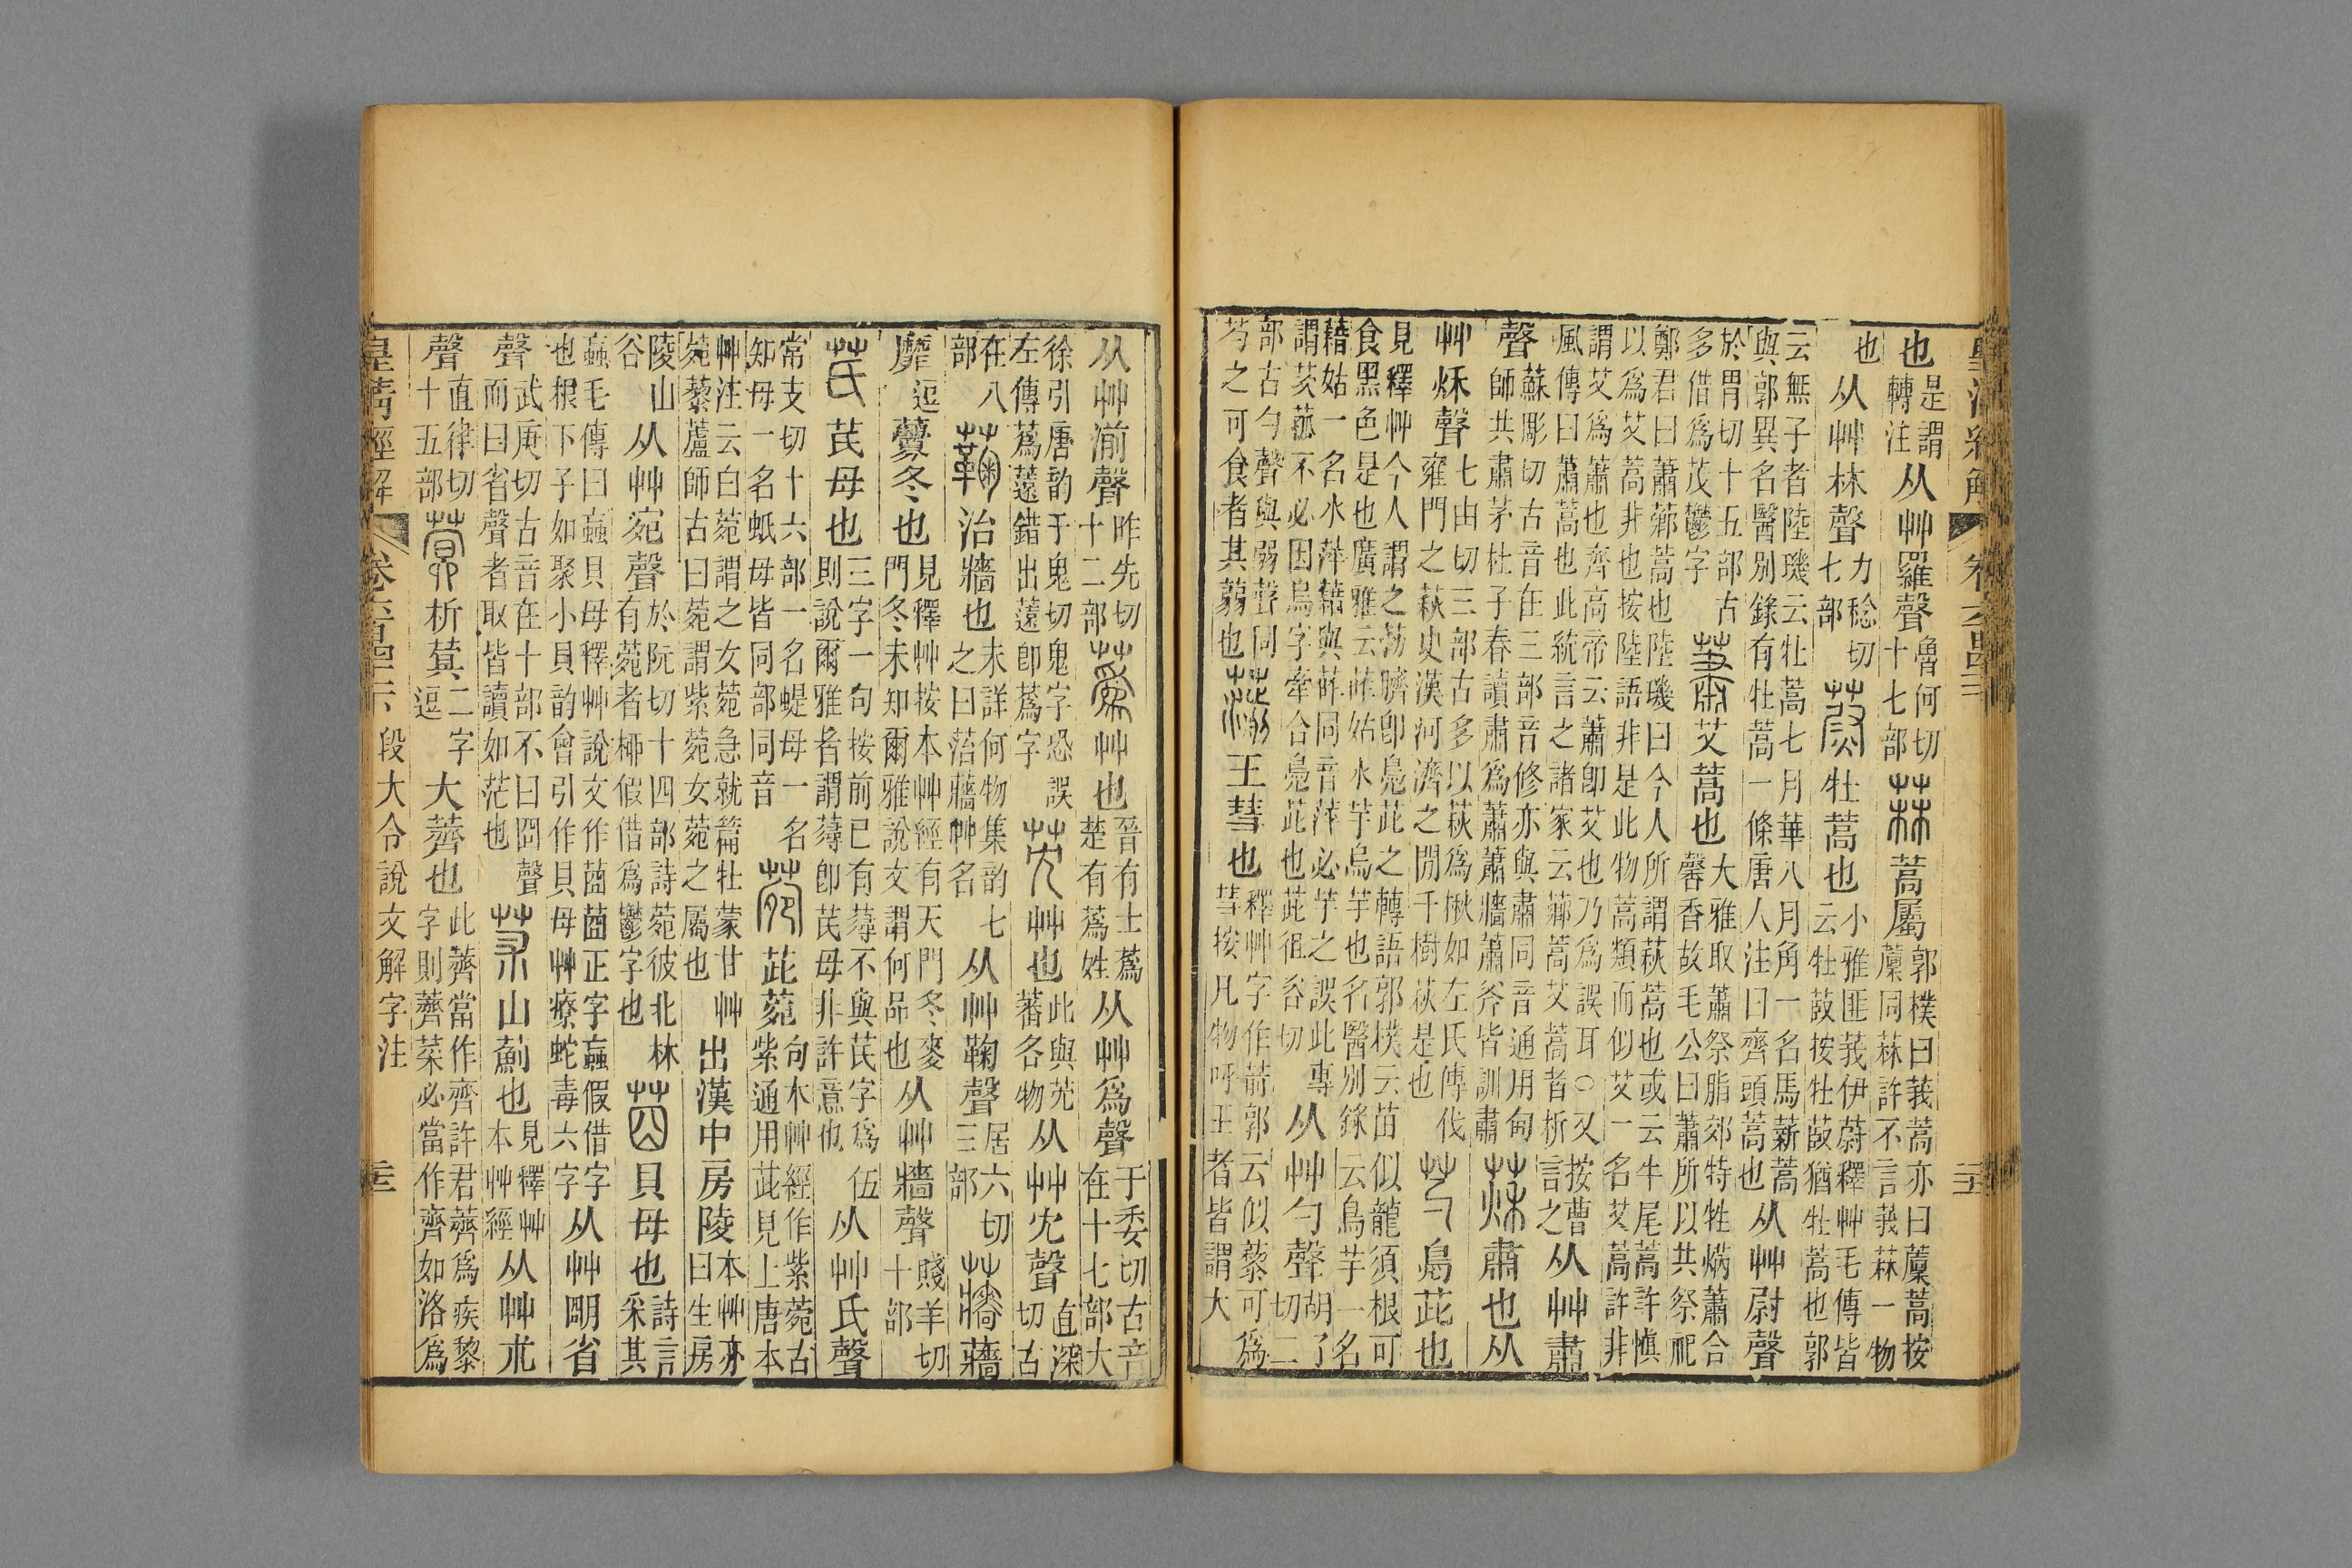 也是謂轉注从艸羅聲魯何切十七部菻蒿屬郭樸曰莪蒿亦曰䕲蒿按䕲同菻許不言莪菻一物
也从艸林聲力稔切七部蔚牡蒿也小雅匪莪伊蔚釋艸毛傳皆云牡菣按牡菣猶牡蒿也郭
云無子者陸璣云牡蒿七月華八月角一名馬薪蒿與郭異名醫別錄有牡蒿一條唐人注曰齊頭蒿也从艸尉聲
於胃切十五部古多借爲茂鬱字蕭艾蒿也大雅取蕭祭脂郊特牲焫蕭合馨香故毛公曰蕭所以共祭祀
鄭君曰蕭薌蒿也陸璣曰今人所謂萩蒿也或云牛尾蒿許慎以爲艾蒿非也按陸語非是此物蒿類而似艾一名艾蒿許非
謂艾爲蕭也齊高帝云蕭卽艾也乃爲誤耳○又按曹風傳曰蕭蒿也此統言之諸家云薌蒿艾蒿者析言之从艸肅
聲蘇彫切古音在三部音修亦與肅同音通用甸師共肅茅杜子春讀肅爲蕭蕭牆蕭斧皆訓肅萩肅也从
艸秌聲七由切三部古多以萩爲楸如左氏傳伐雍門之萩史漢河濟之閒千樹萩是也芍鳧茈也
見釋艸今人謂之葧臍卽鳧茈之轉語郭樸云苗似龍須根可食黑色是也廣雅云葃姑水芋烏芋也名醫別錄云烏芋一名
藉姑一名水萍藉與葃同音萍必芋之誤此專謂茨菰不必因烏字牽合鳧茈也茈徂咨切从艸勺聲胡了切二
部古勺聲與弱聲同芍之可食者其蒻也湔王彗也釋艸字作葥郭云似藜可爲彗按凡物呼王者皆謂大
从艸湔聲昨先切十二部蔿艸也晉有士蔿楚有蔿姓从艸爲聲于委切古音在十七部大
徐引唐韵于鬼切鬼字恐誤左傳蔿薳錯出薳卽蔿字芄艸也此與芜蕃各物从艸冘聲直深切古
在八部䕮治牆也未詳何物集韵七之曰菭蘠艸名从艸鞠聲居六切三部蘠蘠
蘼逗虋冬也見釋艸按本艸經有天門冬麥門冬未知爾雅說文謂何品也从艸牆聲賤羊切十部
芪芪母也三字一句按前已有䓴不與芪字爲伍則說爾雅者謂䓴卽芪母非許意也从艸氏聲
常支切十六部一名蝭母一名知母一名蚔母皆同部同音菀茈菀句本艸經作紫菀古紫通用茈見上唐本
艸注云白菀謂之女菀急就篇牡蒙甘艸菀藜蘆師古曰菀謂紫菀女菀之屬也出漢中房陵本艸亦曰生房
陵山谷从艸宛聲於阮切十四部詩菀彼北林有菀者桺假借爲鬱字也茵貝母也詩言采其
蝱毛傳曰蝱貝母釋艸說文作茵茵正字蝱假借字也根下子如聚小貝韵會引作貝母艸療蛇毒六字从艸朙省
聲武庚切古音在十部不曰囧聲而曰省聲者取皆讀如茫也𦬸山薊也見釋艸本艸經从艸朮
聲直律切十五部蓂析蓂二字逗大薺也此薺當作齊許君薺爲疾黎字則薺菜必當作齊如洛爲
皇淸經解 卷六百四十一下 段大令說文解字注